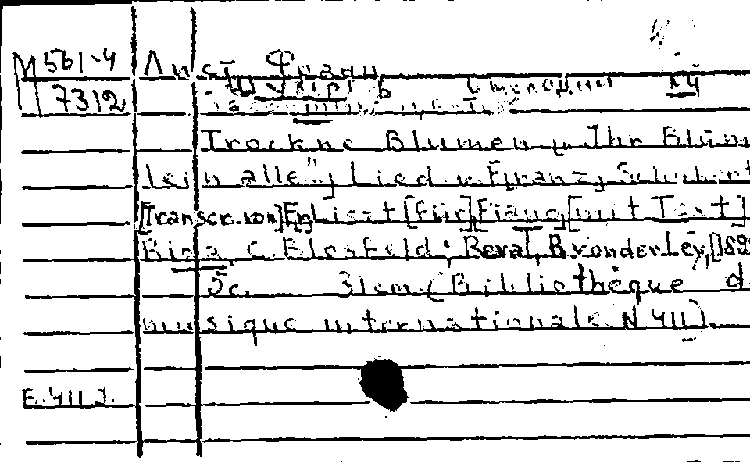 М 561-4 Лист, Франц
7312 Шуберт
Trockne Blumen „Ihr Blüm
lein alle", Lied v. Franz Schubert
[Transcr. von] F. Liszt [für] Piano [mit Text]
Riga, C. Blosfeld;
5 c. 31 cm (Bibliothèque d
musique internationale N 411).
E. 411 J.